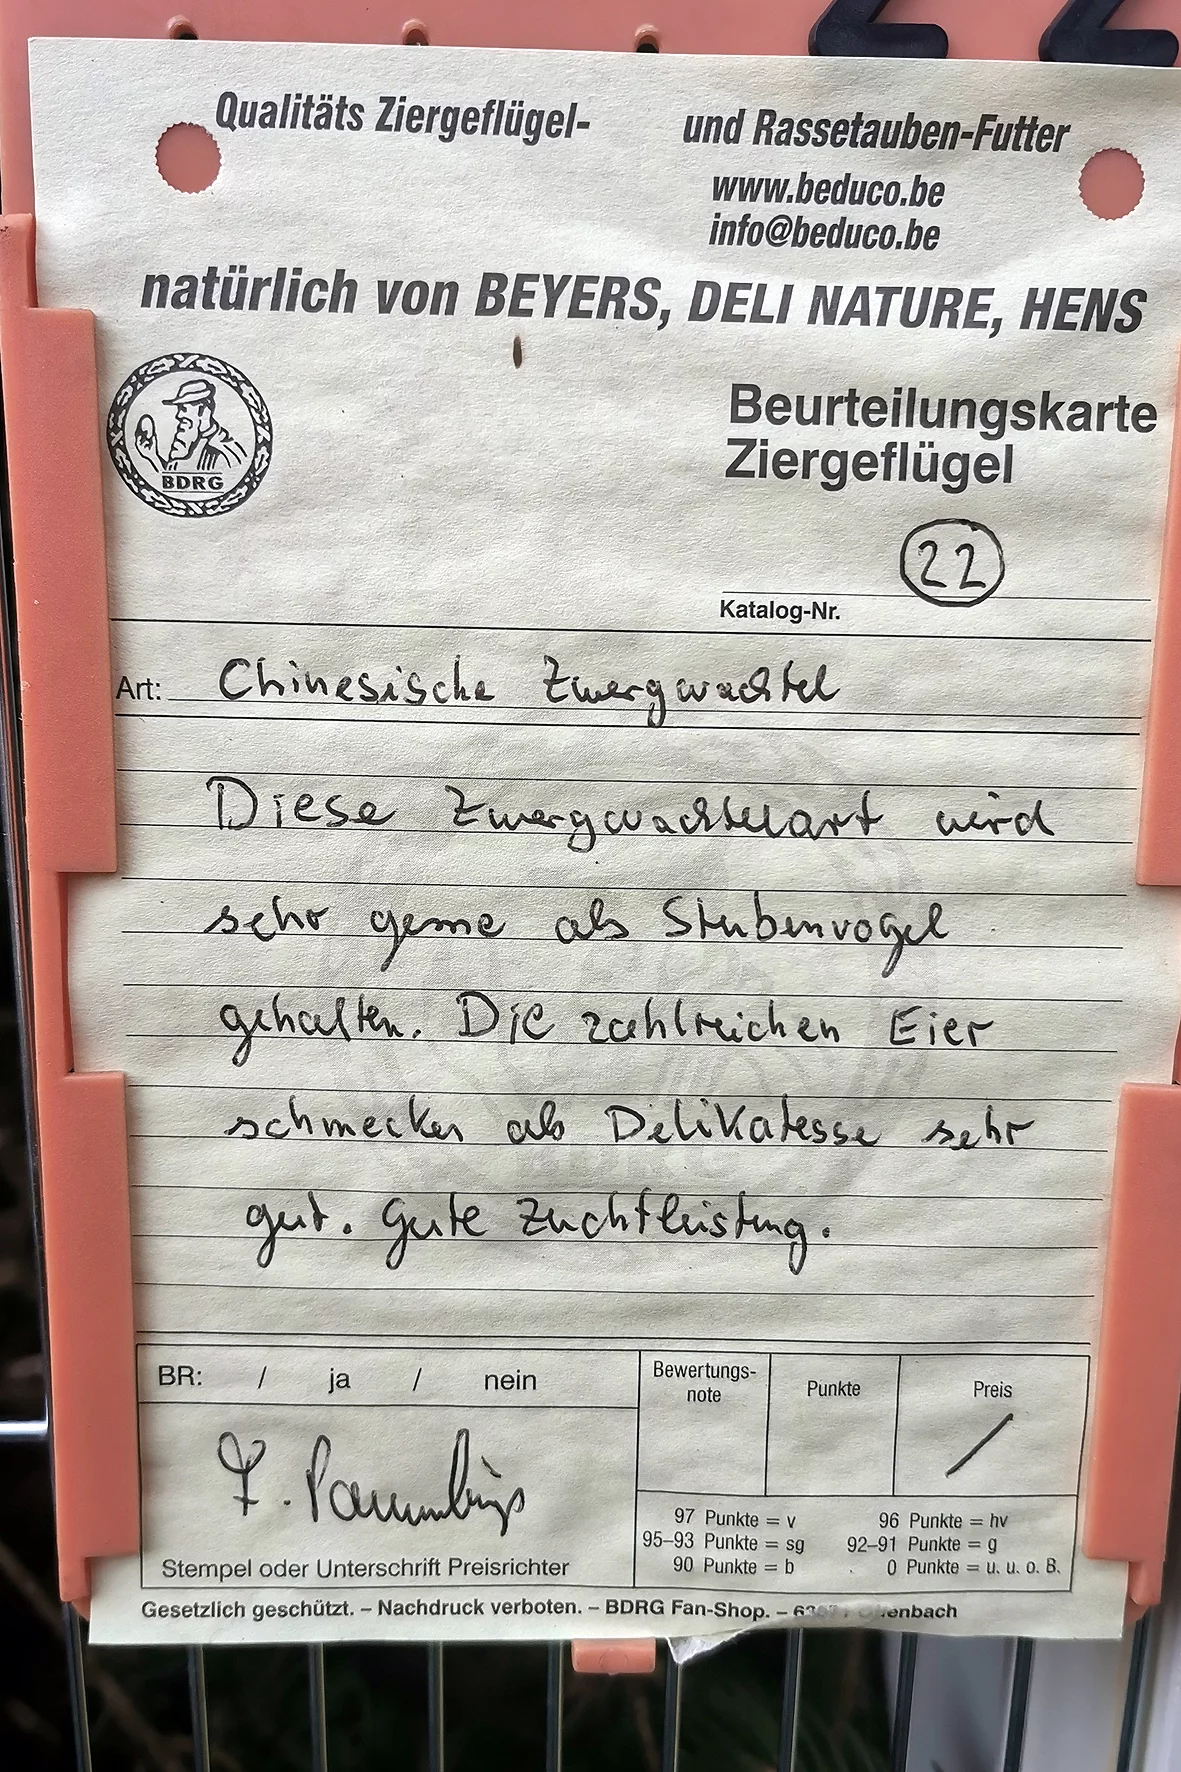 22
Qualitäts Ziergeflügel- und Rassetauben-Futter
www.beduco.be
info@beduco.be
natürlich von BEYERS, DELI NATURE, HENS
BDRG
Beurteilungskarte
Ziergeflügel
22
Katalog-Nr.
Art: Chinesische Zwergwachtel
Diese Zwergwachtelart wird
sehr gerne als Stubenvogel
gehalten. Die zahlreichen Eier
schmecken als Delikatesse sehr
gut. Gute Zuchtleistung.
BR: / ja / nein
Bewertungs-
note
Punkte
Preis
97 Punkte = v 96 Punkte = hv
95–93 Punkte = sg 92–91 Punkte = g
90 Punkte = b 0 Punkte = u. u. o. B.
Stempel oder Unterschrift Preisrichter
Gesetzlich geschützt. – Nachdruck verboten. – BDRG Fan-Shop. –